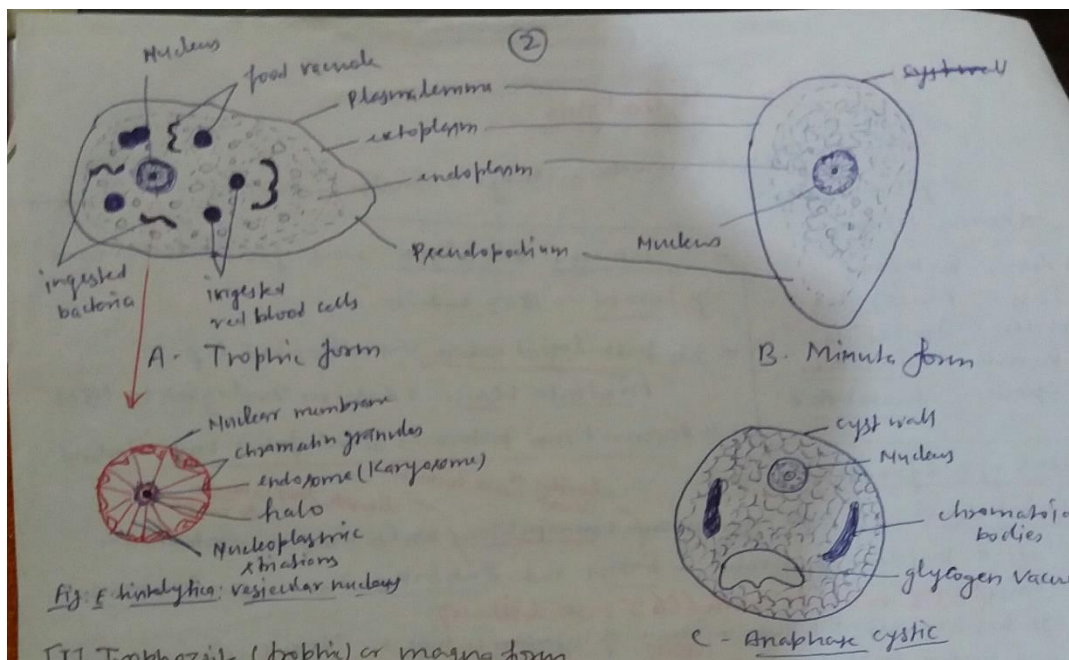 2
Nucleus
food vacuole
Plasmalemma
cyst wall
ektoplasm
endoplasm
Pseudopodium
Nucleus
ingested
bacteria
ingested
red blood cells
A - Trophic form
B - Minuta form
Nuclear membrane
chromatin granules
endosome (Karyosome)
halo
Nucleoplasmic
striations
Fig: E. histolytica: vesicular nucleus
cyst wall
Nucleus
chromatoid
bodies
glycogen vacu
C - Anaphase cystic
(trophic) or magna form